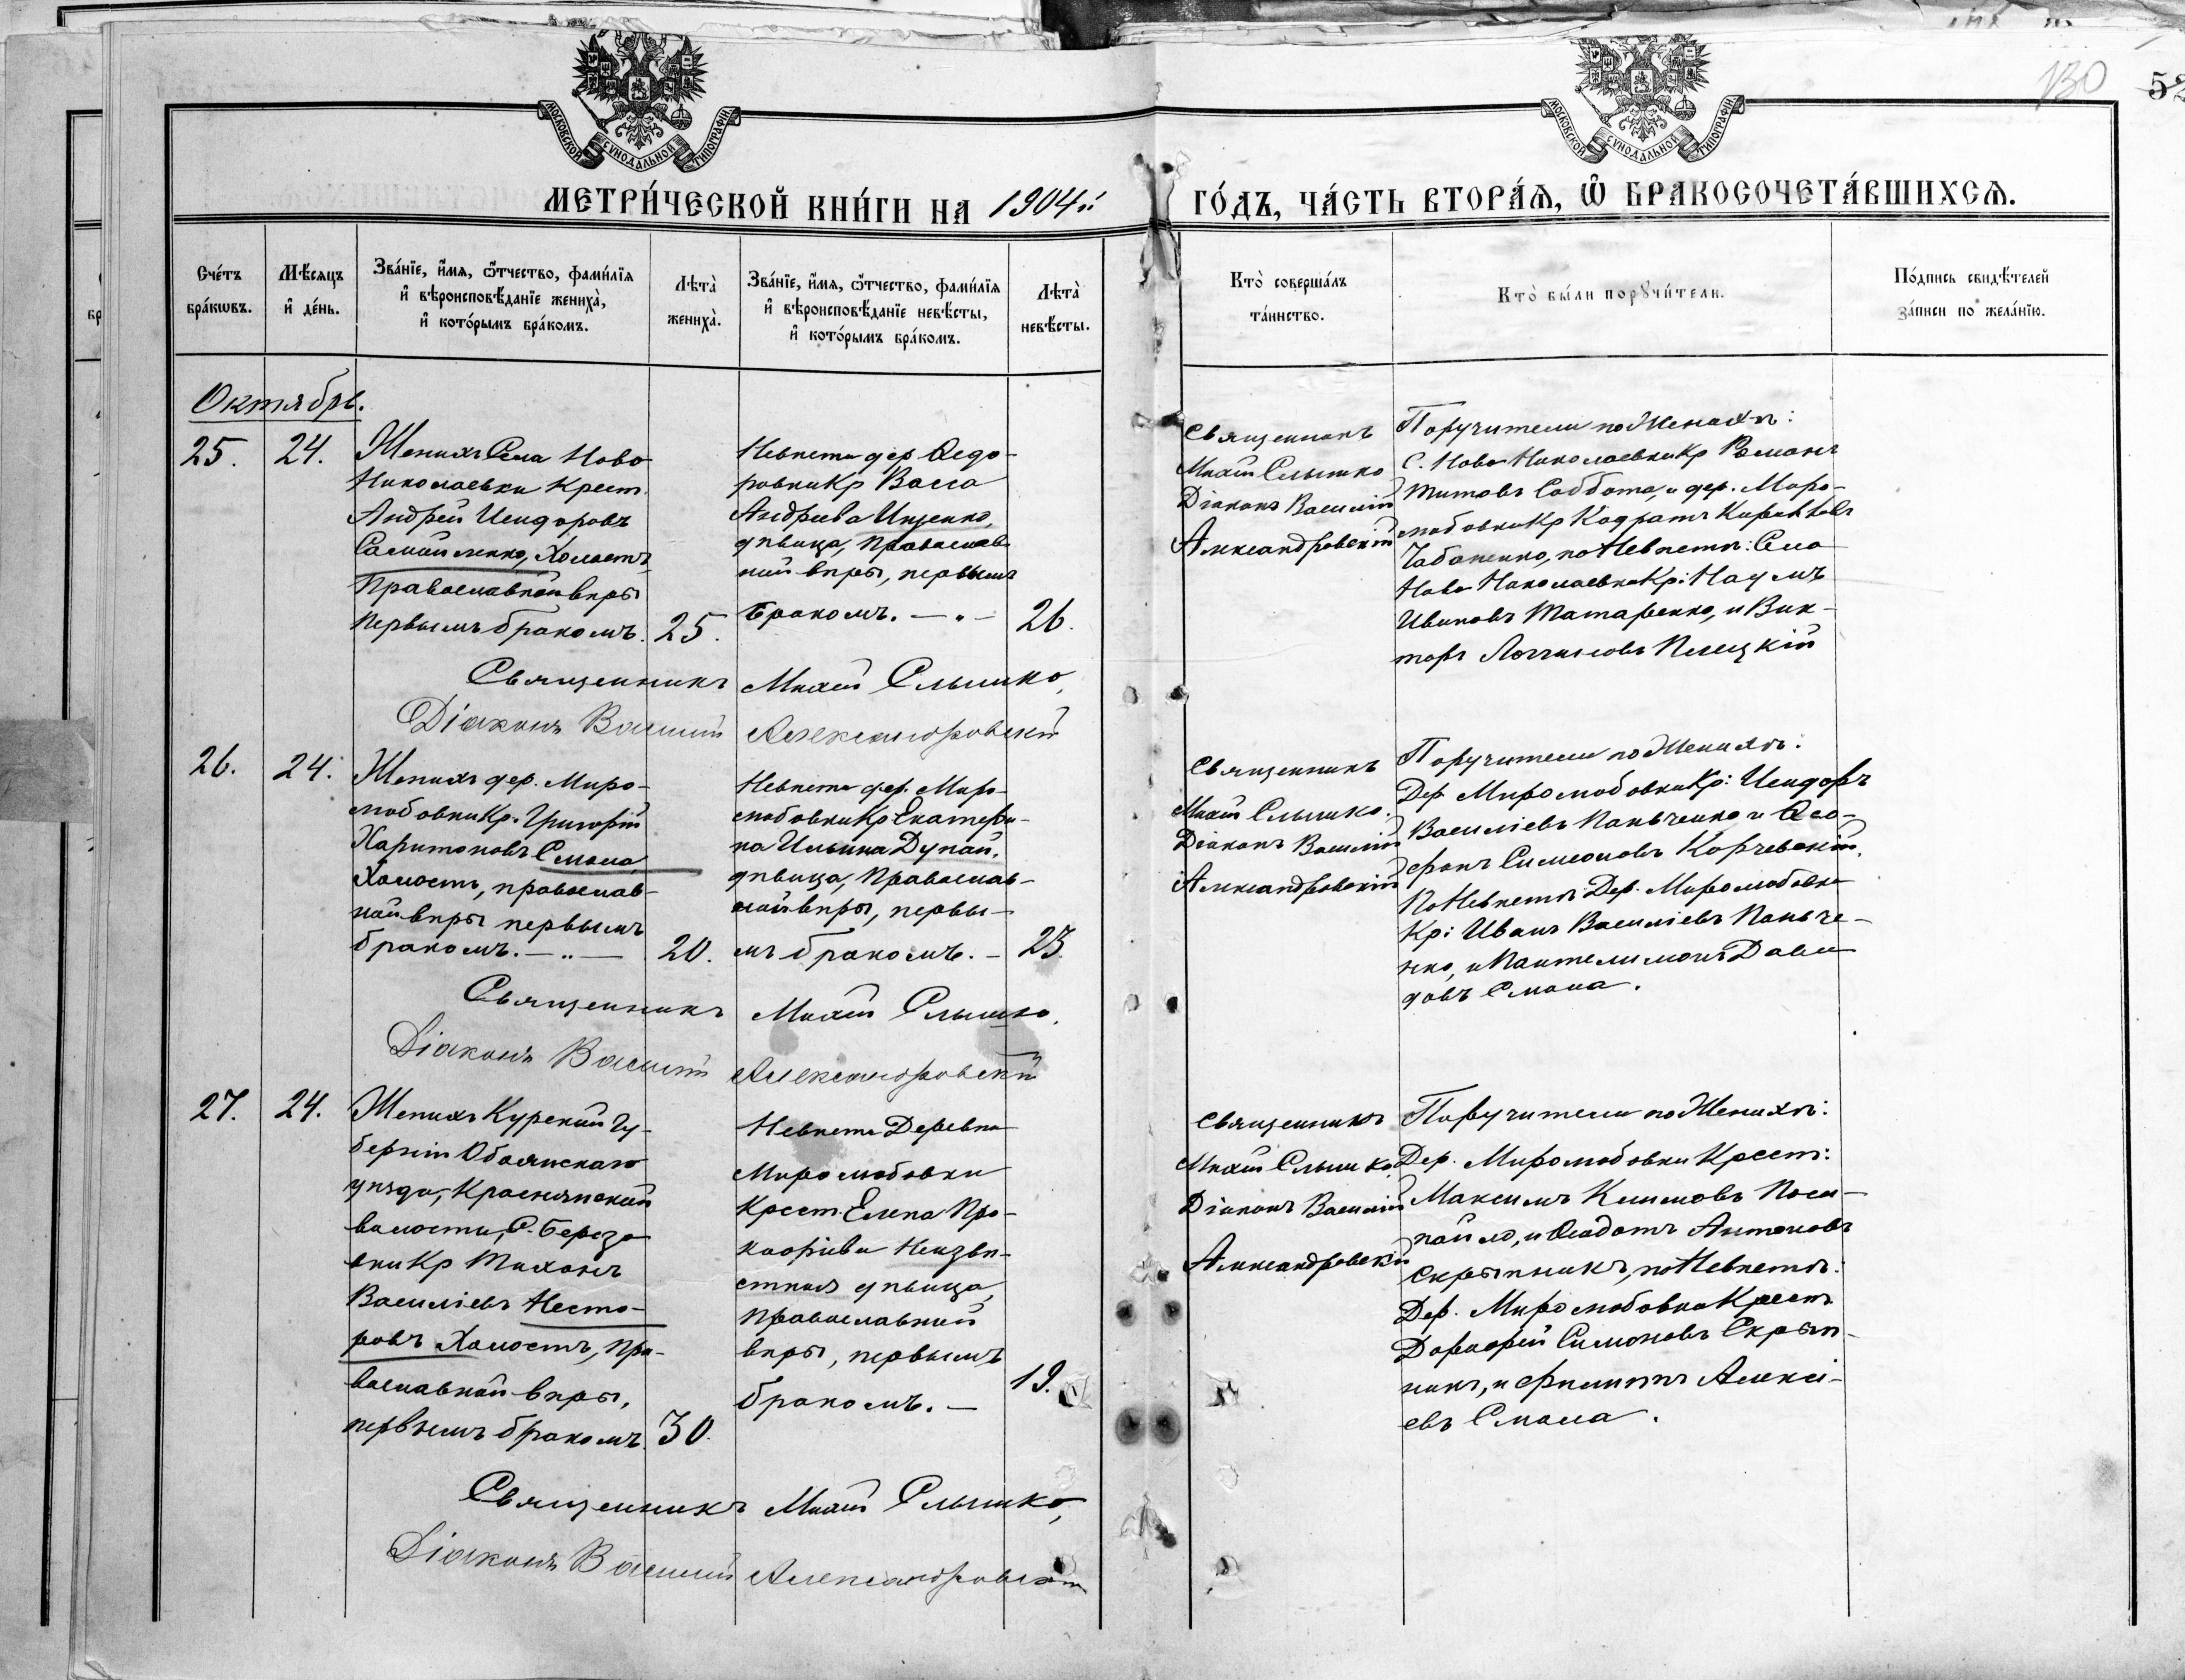 130
52
МОСКОВСКОЙ СѴНОДАЛЬНОЙ ТИПОГРАФІИ
МОСКОВСКОЙ СѴНОДАЛЬНОЙ ТИПОГРАФІИ
МЕТРИ́ЧЕСКОЙ КНИ́ГИ НА 1904й
ГО́ДЪ, ЧА́СТЬ ВТОРА́Ѧ, Ѽ БРАКОСОЧЕТА́ВШИХСѦ.
Сче́тъ
бра́кѡвъ.
Мѣ́сяцъ
и҆ де́нь.
Зва́нїе, и҆́мѧ, ѻ҆́тчество, фами́лїѧ
и҆ вѣроисповѣ́данїе жениха̀,
и҆ кото́рымъ бра́комъ.
Лѣта̀
жениха̀.
Зва́нїе, и҆́мѧ, ѻ҆́тчество, фами́лїѧ
и҆ вѣроисповѣ́данїе невѣ́сты,
и҆ кото́рымъ бра́комъ.
Лѣта̀
невѣ́сты.
Кто̀ соверша́лъ
та́инство.
Кто̀ бы́ли порꙋчи́тели.
По́дпись свидѣ́телей
за́писи по жела́нїю.
Октябрь.
25.
24.
Женихъ Села Ново
Николаевки Крест.
Андрей Исидоровъ
Самойленко, Холостъ,
Православной вѣры
первымъ бракомъ.
25.
Невѣста дер. Ѳедо-
ровки Кр Васса
Андреева Ищенко,
дѣвица, Православ
ной вѣры, первымъ
бракомъ. — " —
26.
Священникъ
Михаил Слышко
Діаконъ Василій
Александровскій
Поручители по Женихѣ:
С. Ново Николаевки Кр Романъ
Титовъ Саббота, и дер. Миро-
любовки Кр Кодратъ
Чабаненко, по Невѣстѣ: Села
Ново Николаевки Кр: Наумъ
Ивановъ Татаренко, и Вик-
торъ Плецкій
Священникъ Михаил Слышко,
Діаконъ Василий Александровский
26.
24.
Женихъ дер. Миро-
любовки Кр. Григорій
Харитоновъ Смола,
Холостъ, православ-
ной вѣры первымъ
бракомъ. — " —
20.
Невѣста дер. Миро-
любовки Кр Екатери-
на Ильина Дунай,
дѣвица, Православ-
ной вѣры, первы-
мъ бракомъ. —
23.
Священникъ
Михаил Слышко.
Діаконъ Василій
Александровскій
Поручители по Женихѣ:
Дер. Миролюбовки Кр: Исидоръ
Василіевъ Панченко и Ѳео-
фанъ Симеоновъ Корчевский,
По Невѣстѣ: Дер. Миролюбовки
Кр: Иванъ Василіевъ Панче-
нко, и Пантелимонъ Дави
довъ Смола.
Священникъ Михаил Слышко.
Діаконъ Василий Александровский
27.
24.
Женихъ Курской Гу-
берніи Обоянскаго
уѣзда, Краснянской
волости, С. Березо
вки Кр Тихонъ
Василіевъ Несто-
ровъ Холостъ, Пра-
вославной вѣры,
первымъ бракомъ.
30.
Невѣста Деревни
Миролюбовки
Крест. Елена Про-
кофіева Неизвѣ-
стная дѣвица,
Православной
вѣры, первымъ
бракомъ. —
19.
Священникъ
Михаил Слышко,
Діаконъ Василій
Александровскій
Поручители по Женихѣ:
Дер. Миролюбовки Крест:
Максимъ Климовъ
и Ѳеодотъ Антоновъ
Скрыпникъ, по Невѣстѣ:
Дер. Миролюбовки Крест
Дорофей Симоновъ Скрып-
никъ, и Филиппъ Алексі-
евъ Смола.
Священникъ Михаил Слышко,
Діаконъ Василий Александровский